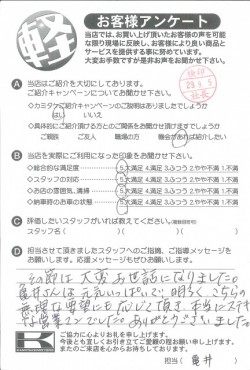 軽
お客様アンケート
当店では、お買い上げ頂いたお客様の声を可能
な限り現場に反映し、お客様により良い商品と
サービスを提供する事に努めています。
大変お手数ですが是非お声をお聞かせ下さい。
A 当店はご紹介を大切にしております。
ご紹介キャンペーンについてお聞かせ下さい。
◇カミタケご紹介キャンペーンのご説明はありましたでしょうか
はい いいえ
◇具体的にご紹介頂ける方とのご関係をお聞かせ頂けますでしょうか
ご親戚 ご友人 職場の方 機会があれば紹介したい
B 当店を実際にご利用になられた印象をお聞かせ下さい。
◇総合的な満足度 5.大満足 4.満足 3.ふつう 2.やや不満 1.不満
◇スタッフの対応 5.大満足 4.満足 3.ふつう 2.やや不満 1.不満
◇お店の雰囲気、清掃 5.大満足 4.満足 3.ふつう 2.やや不満 1.不満
◇納車時のお車の状態 5.大満足 4.満足 3.ふつう 2.やや不満 1.不満
C 評価したいスタッフがいれば教えてください。(複数回答可)
スタッフ名( )( )( )
D 担当させて頂きましたスタッフへのご指摘、ご指導メッセージを
お願いします。応援メッセージもぜひお願いします。
その節は大変お世話になりました。
亀井さんは元気いっぱいで明るく、こちらの
無理な要望にも応じて頂き、本当にステキ
な営業マンでした。ありがとうございました。
K
ご協力に心よりお礼を申し上げます。
今後とも宜しくお引き立てご愛顧の程お願い申し上げます。
またのご来店を心からお待ちしております。
担当( 亀井 )